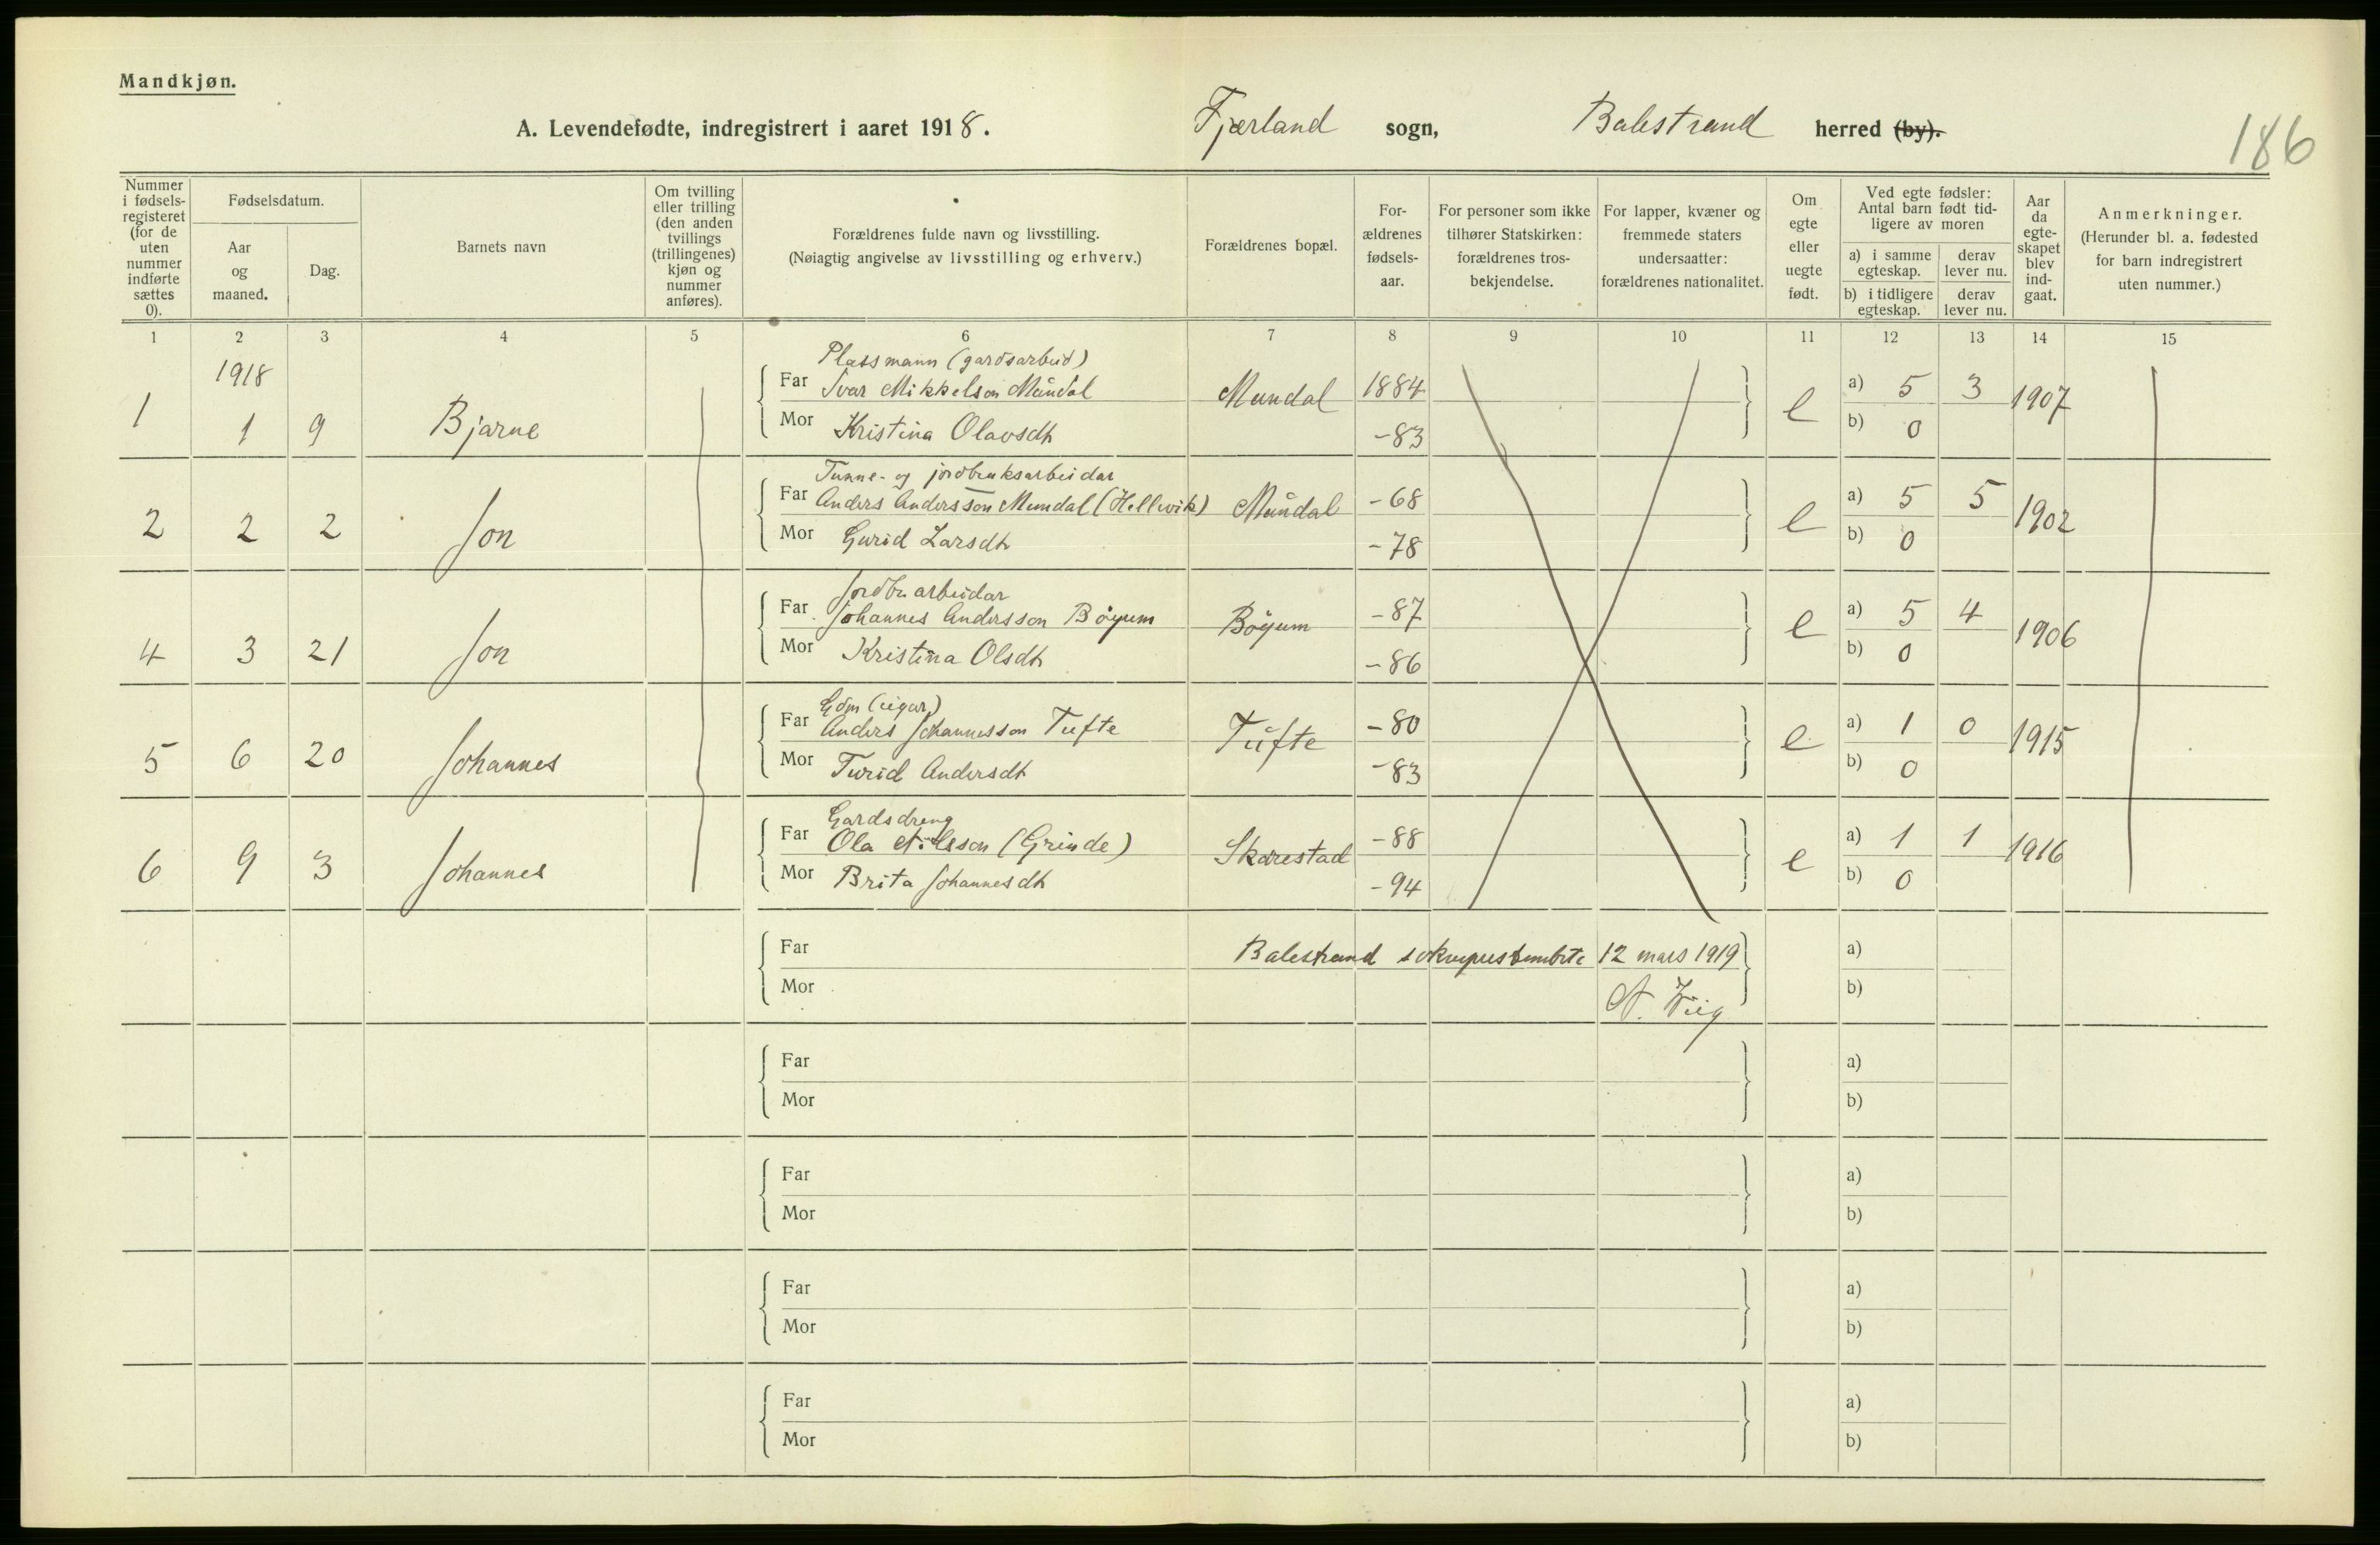 Mandkjøn.
A. Levendefødte, indregistrert i aaret 1918. Fjærland sogn, Balestrand herred (by).
186
Nummer i fødsels-registeret (for de uten nummer indførte sættes 0).
Fødselsdatum.
Aar og maaned.
Dag.
Barnets navn
Om tvilling eller trilling (den anden tvillings (trillingenes) kjøn og nummer anføres).
Forældrenes fulde navn og livsstilling.
(Nøiagtig angivelse av livsstilling og erhverv.)
Forældrenes bopæl.
For-ældrenes fødsels-aar.
For personer som ikke tilhører Statskirken: forældrenes tros-bekjendelse.
For lapper, kvæner og fremmede staters undersaatter: forældrenes nationalitet.
Om egte eller uegte født.
Ved egte fødsler: Antal barn født tid-ligere av moren
a) i samme egteskap.
derav lever nu.
b) i tidligere egteskap.
derav lever nu.
Aar da egte-skapet blev ind-gaat.
Anmerkninger.
(Herunder bl. a. fødested for barn indregistrert uten nummer.)
1 2 3 4 5 6 7 8 9 10 11 12 13 14 15
1918
Plassmann (gardsarbeid)
1 1 9 Bjarne Far Ivar Mikkelson Mundal Mundal 1884 e a) 5 3 1907
Mor Kristina Olavsdh -83 b) 0
Tunne- og jordbruksarbeidar
2 2 2 Jon Far Anders Andersson Mundal (Hellevik) Mundal -68 e a) 5 5 1902
Mor Gurid Larsdh -78 b) 0
Jordbr arbeidar
4 3 21 Jon Far Johannes Andersson Bøyum Bøyum -87 e a) 5 4 1906
Mor Kristina Olsdh -86 b) 0
Gdm (eigar)
5 6 20 Johannes Far Anders Johannesson Tufte Tufte -80 e a) 1 0 1915
Mor Turid Andersdh -83 b) 0
Gardsdreng
6 9 3 Johannes Far Ola Nilsson (Grinde) Skarestad -88 e a) 1 1 1916
Mor Brita Johannesdh -94 b) 0
Far Balestrand sokneprestembete 12 mars 1919 a)
Mor b)
Far a)
Mor b)
Far a)
Mor b)
Far a)
Mor b)
Far a)
Mor b)